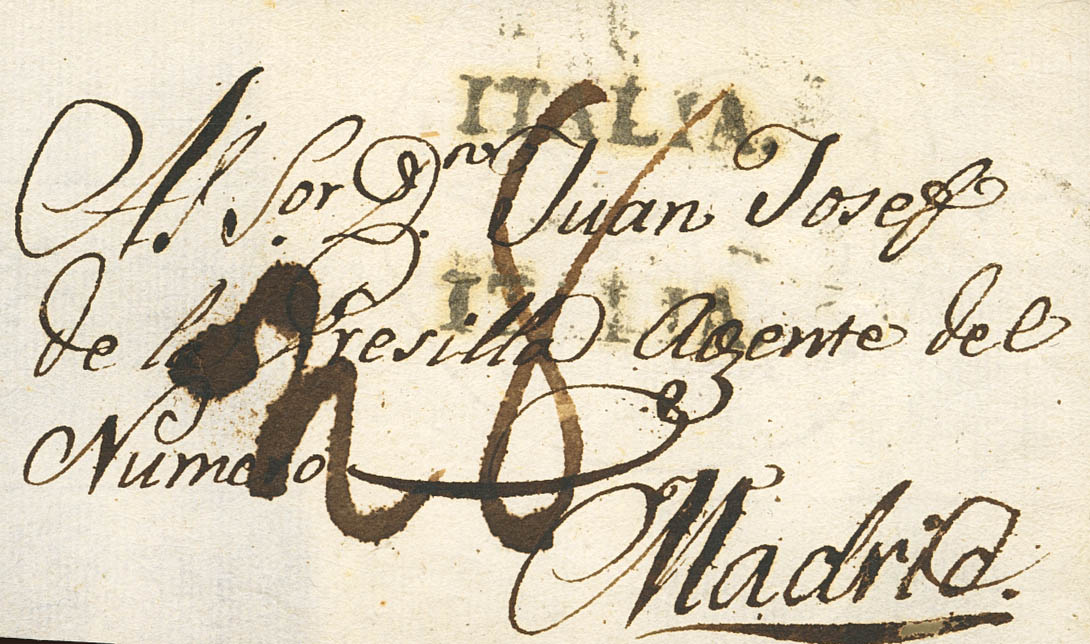 ITALIA.
Al. Sor. Dn. Juan Josef
ITALIA
de la Presilla Agente del
Numero
Madrid.